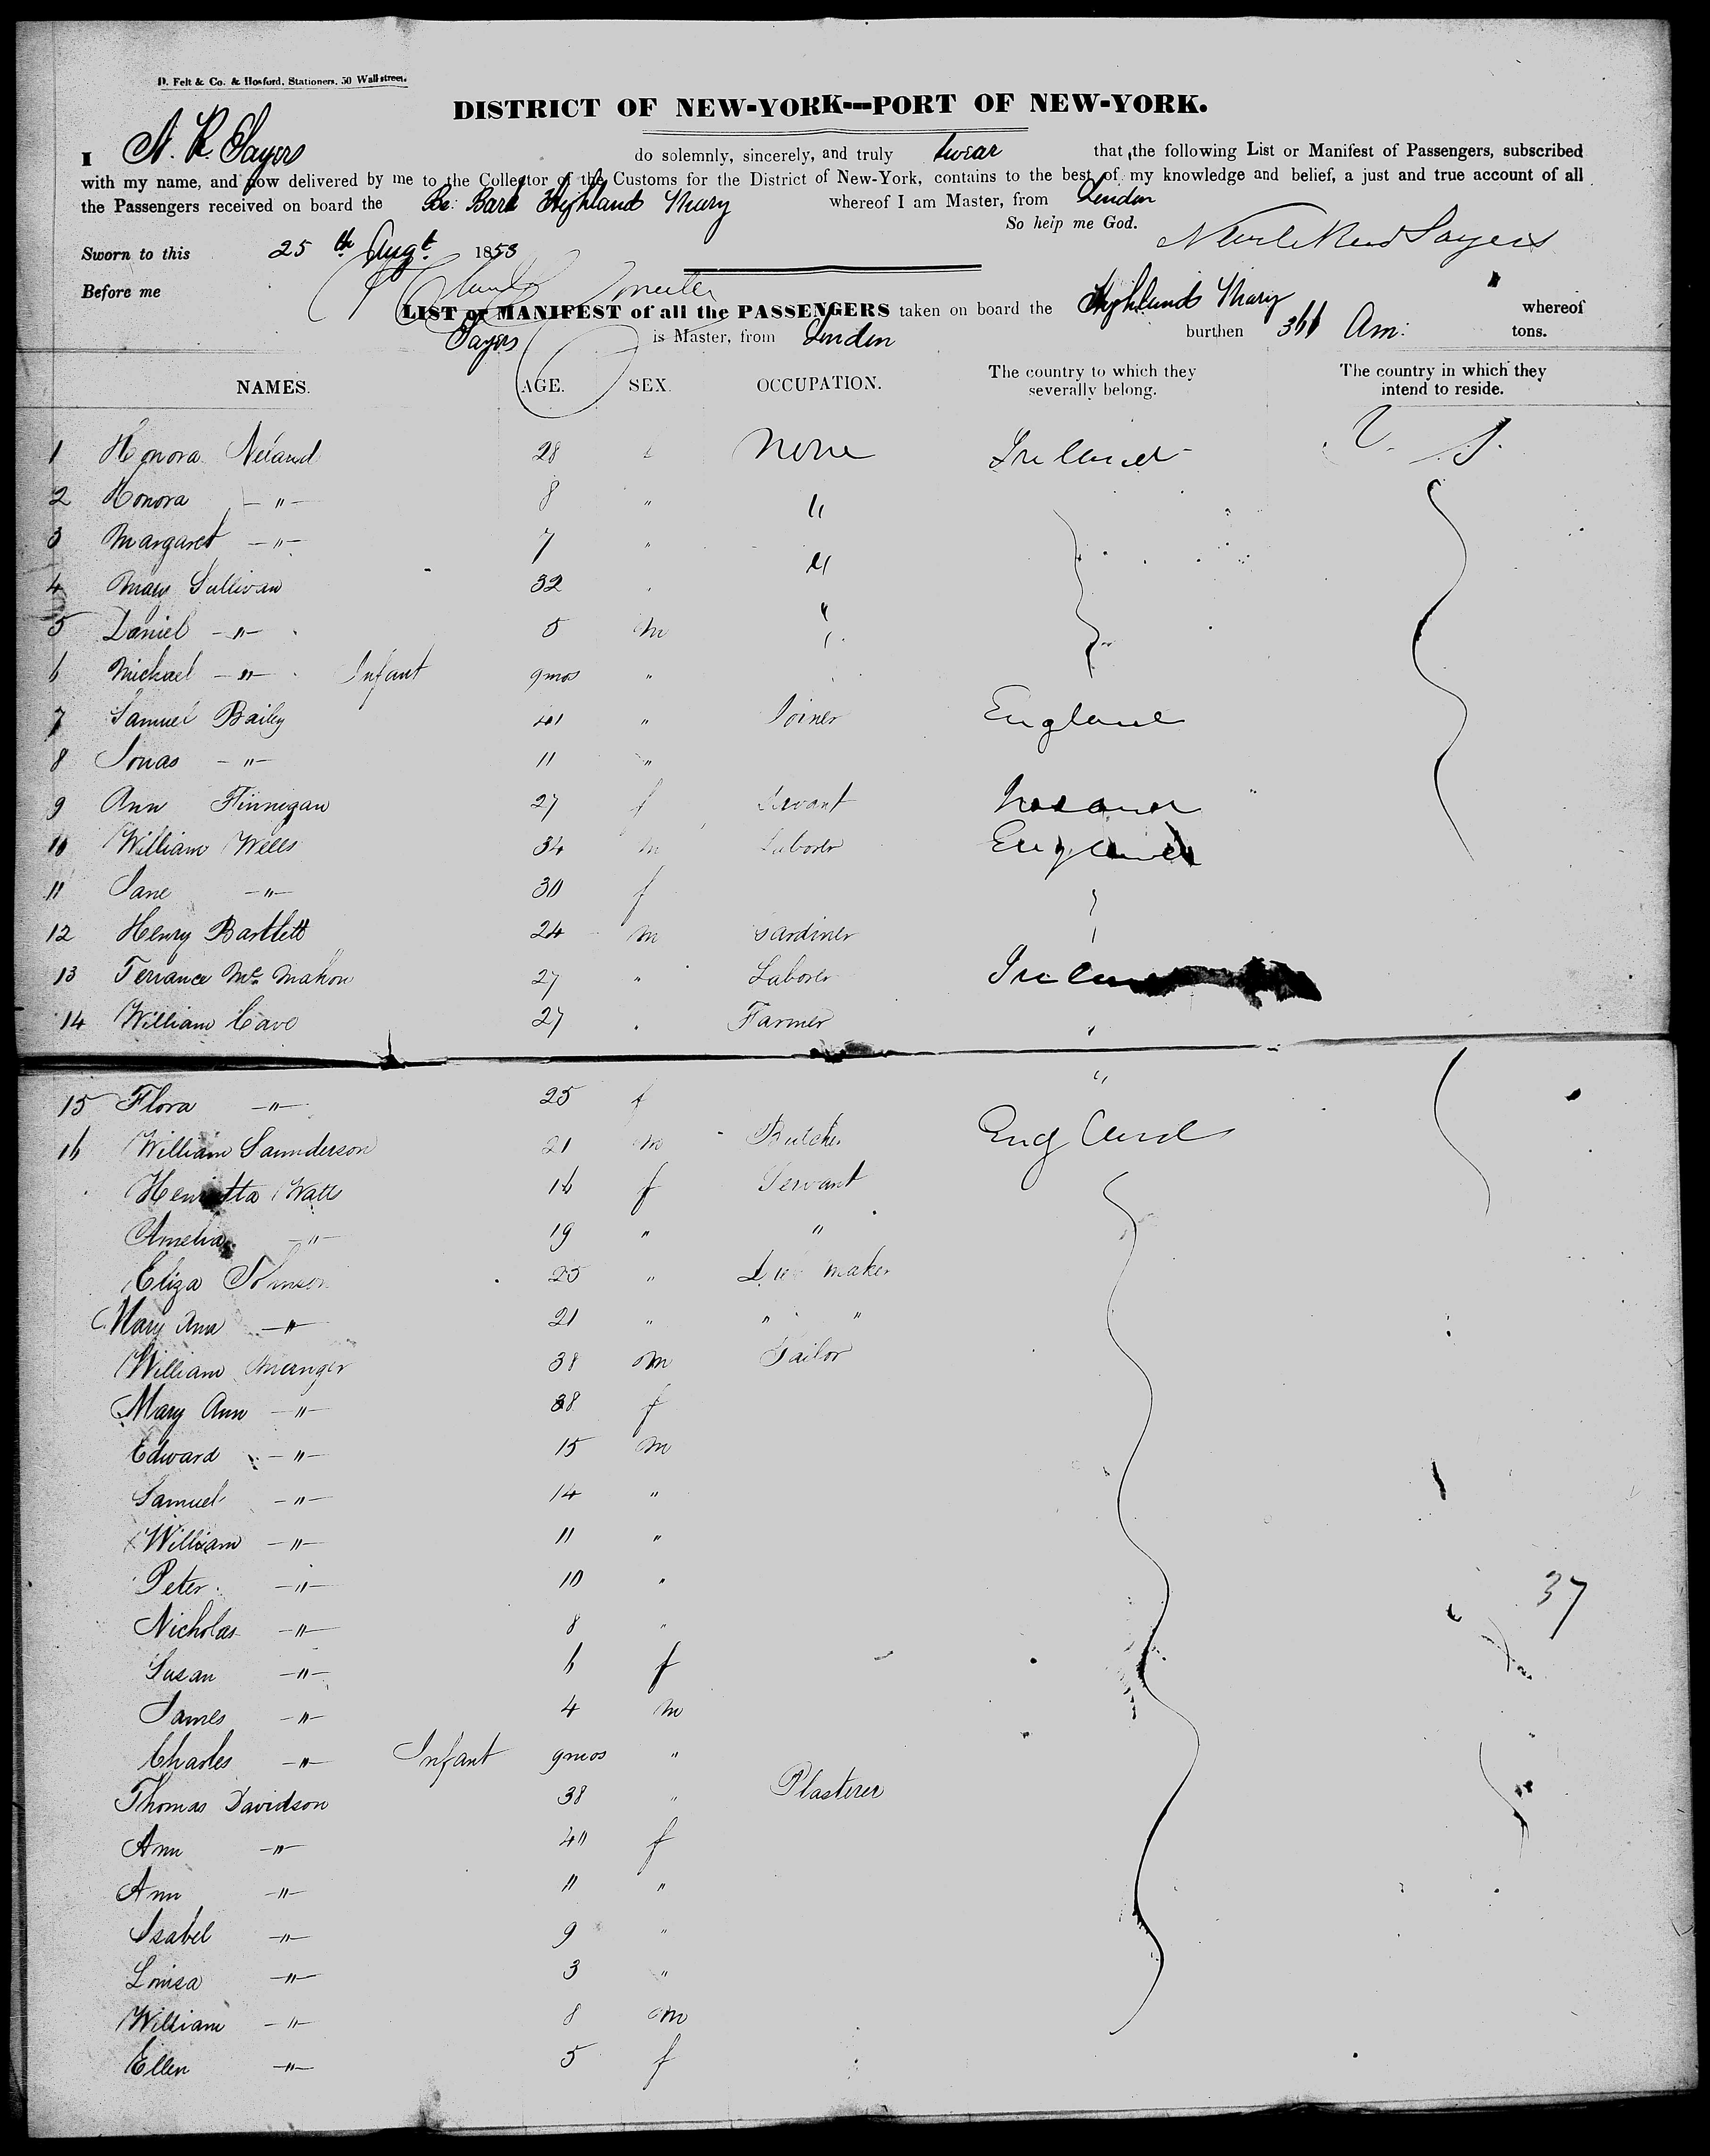 D. Felt & Co. & Hosford, Stationers, 50 Wall-street.
DISTRICT OF NEW-YORK---PORT OF NEW-YORK.
I N. R. Sayers do solemnly, sincerely, and truly swear that the following List or Manifest of Passengers, subscribed
with my name, and now delivered by me to the Collector of the Customs for the District of New-York, contains to the best of my knowledge and belief, a just and true account of all
the Passengers received on board the Br. Bark Highland Mary whereof I am Master, from London
So help me God.
Sworn to this 25th Augt. 1853 Sayers
Before me
LIST or MANIFEST of all the PASSENGERS taken on board the Highland Mary whereof
Sayers is Master, from London burthen tons.
NAMES. AGE. SEX. OCCUPATION. The country to which they severally belong. The country in which they intend to reside.
1 Honora 28 f None Ireland U. S.
2 Honora —"— 8 " "
3 Margaret —"— 7 " "
4 Mary Sullivan 32 "
5 Daniel —"— 5 m "
6 Michael —"— Infant 9mos "
7 Samuel Bailey 41 " Joiner England
8 Jonas —"— 11 "
9 Ann Finnegan 27 f Servant
10 William Wells 34 m Laborer England
11 Jane —"— 30 f
12 Henry Bartlett 24 m Gardiner
13 Terrance Mc. Mahon 27 " Laborer Ireland
14 William Cave 27 " Farmer "
15 Flora —"— 25 f "
16 William Saunderson 21 m Butcher England
Henrietta Watts 16 f Servant
Amelia —"— 19 " "
Eliza Johnson 25 " maker
Mary Ann —"— 21 " " "
William 38 m Tailor
Mary Ann —"— 38 f
Edward —"— 15 m
Samuel —"— 14 "
William —"— 11 "
Peter —"— 10 "
37
Nicholas —"— 8 "
Susan —"— 6 f
James —"— 4 m
Charles —"— Infant 9mos "
Thomas Davidson 38 " Plasterer
Ann —"— 40 f
Ann —"— 11 "
Isabel —"— 9 "
Louisa —"— 3 "
William —"— 8 m
Ellen —"— 5 f